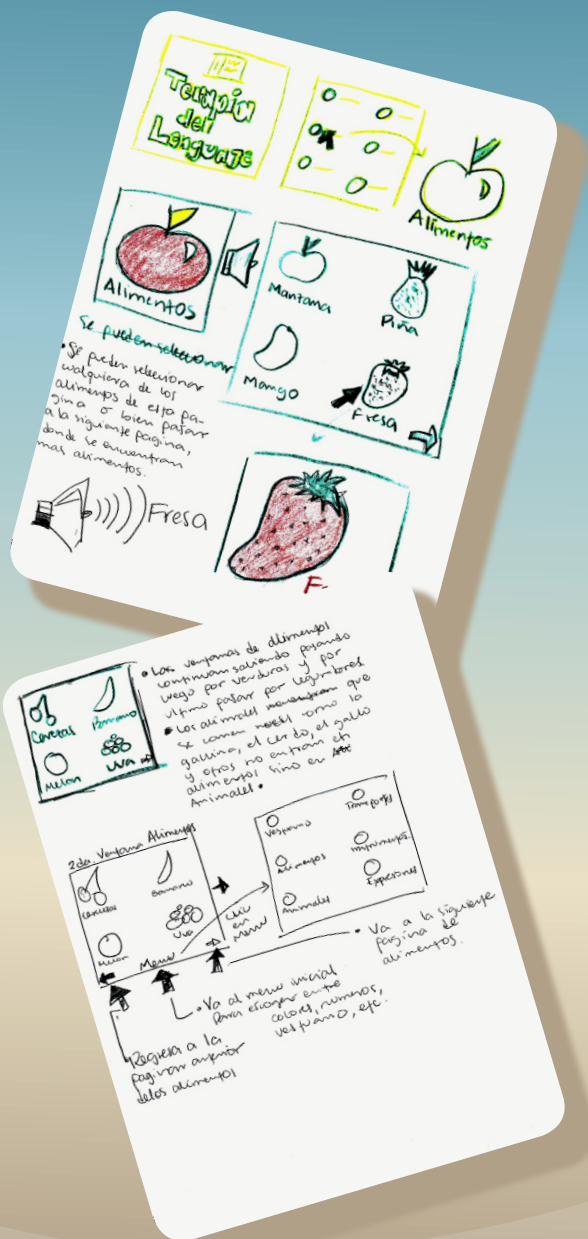 Terapia
del
Lenguaje
Alimentos
Alimentos
Manzana
Piña
Mango
Fresa
Se pueden seleccionar
• Se pueden seleccionar
cualquiera de los
alimentos de esta pa-
gina o bien pasar
a la siguiente pagina,
donde se encuentran
mas alimentos.
Fresa
F-
Cerezas
Banano
Melon
Uva
• Las ventanas de alimentos
continuan saliendo pasando
luego por verduras y por
ultimo pasar por legumbres
• Los animales que
se comen como la
gallina, el cerdo, el gallo
y otros no entran en
alimentos sino en
Animales •
2da. Ventana Alimentos
Cerezas
Banano
Melon
Uva
Menu
Clic
en
Menu
Vestuario
Transportes
Alimentos
Instrumentos
Animales
Expresiones
• Va a la siguiente
pagina de
alimentos.
• Va al menu inicial
para escoger entre
colores, numeros,
vestuario, etc.
• Regresa a la
pagina anterior
de los alimentos